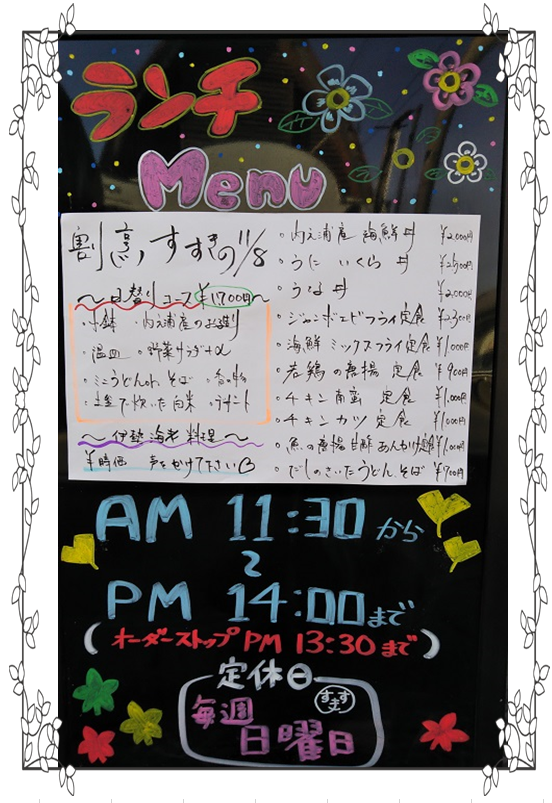 ランチ
Menu
割烹 すすきの 11/8
〜日替りコース ¥1,700円〜
・小鉢 ・内之浦産のお造り
・温皿 ・野菜サラダ+α
・ミニうどんorそば ・香の物
・土釜で炊いた白米 ・デザート
〜伊勢海老料理〜
¥時価 声をかけて下さい
・内之浦産 海鮮丼 ¥2,000円
・うに いくら 丼 ¥2,500円
・うな丼 ¥2,000円
・ジャンボエビフライ定食 ¥2,300円
・海鮮ミックスフライ定食 ¥1,000円
・若鶏の唐揚 定食 ¥900円
・チキン南蛮 定食 ¥1,000円
・チキンカツ 定食 ¥1,000円
・魚の唐揚甘酢あんかけ定食 ¥1,000円
・だしのきいたうどん、そば ¥700円
AM 11:30 から
〜
PM 14:00 まで
(オーダーストップ PM 13:30 まで)
定休日
毎週
日曜日